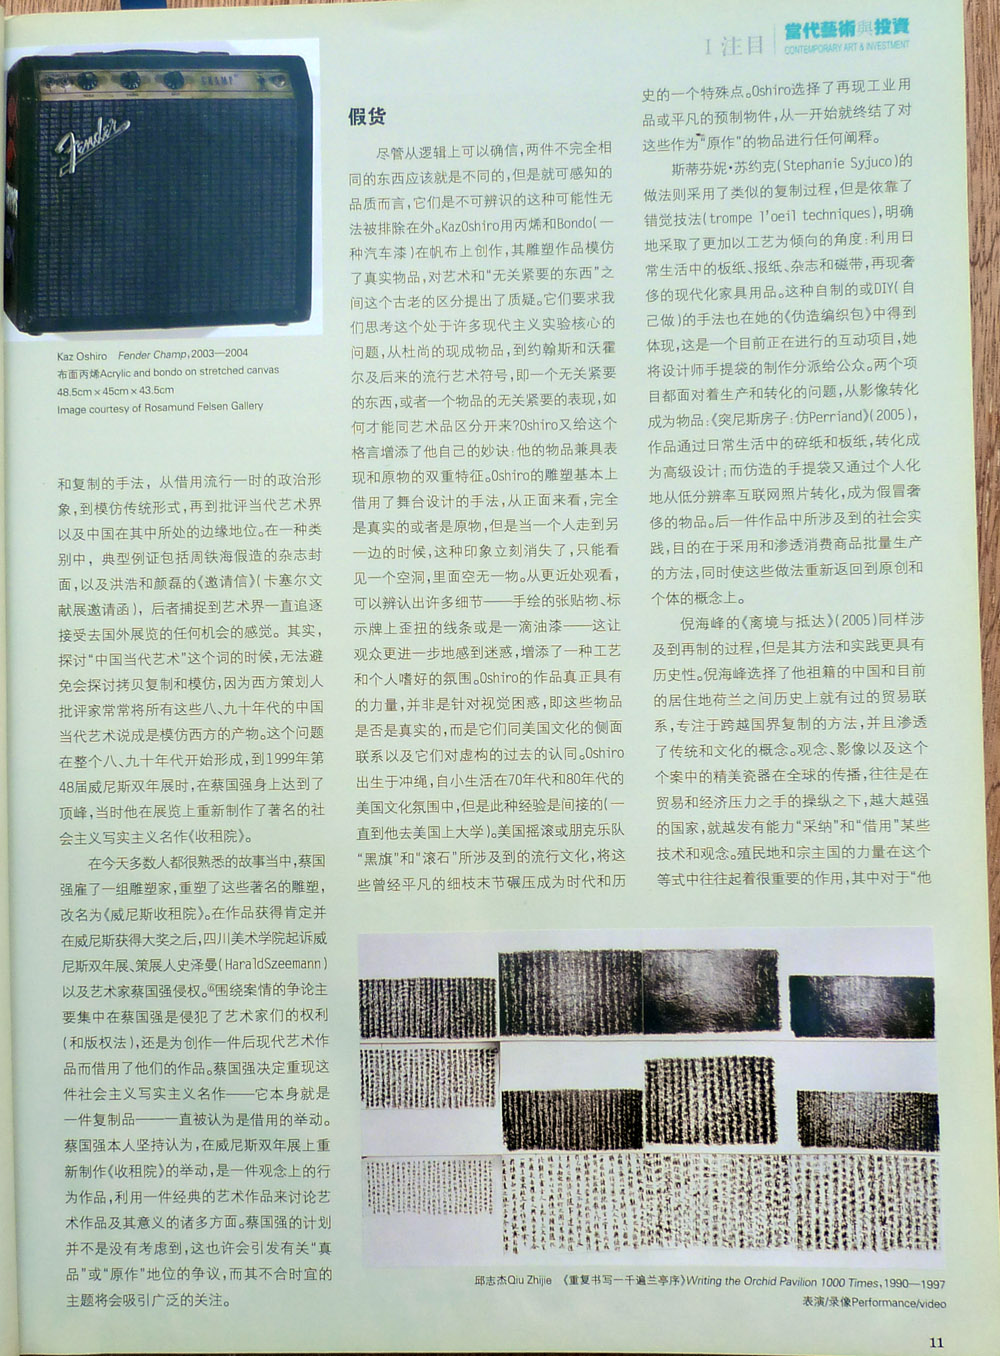 I 注目
當代藝術與投資
CONTEMPORARY ART & INVESTMENT
CHAMP
Fender
Kaz Oshiro Fender Champ,2003—2004
布面丙烯Acrylic and bondo on stretched canvas
48.5cm×45cm×43.5cm
Image courtesy of Rosamund Felsen Gallery
和复制的手法，从借用流行一时的政治形
象，到模仿传统形式，再到批评当代艺术界
以及中国在其中所处的边缘地位。在一种类
别中，典型例证包括周铁海假造的杂志封
面，以及洪浩和颜磊的《邀请信》(卡塞尔文
献展邀请函)，后者捕捉到艺术界一直追逐
接受去国外展览的任何机会的感觉。其实，
探讨“中国当代艺术”这个词的时候，无法避
免会探讨拷贝复制和模仿，因为西方策划人
批评家常常将所有这些八、九十年代的中国
当代艺术说成是模仿西方的产物。这个问题
在整个八、九十年代开始形成，到1999年第
48届威尼斯双年展时，在蔡国强身上达到了
顶峰，当时他在展览上重新制作了著名的社
会主义写实主义名作《收租院》。
在今天多数人都很熟悉的故事当中，蔡国
强雇了一组雕塑家，重塑了这些著名的雕塑，
改名为《威尼斯收租院》。在作品获得肯定并
在威尼斯获得大奖之后，四川美术学院起诉威
尼斯双年展、策展人史泽曼(HaraldSzeemann)
以及艺术家蔡国强侵权。⑥围绕案情的争论主
要集中在蔡国强是侵犯了艺术家们的权利
(和版权法)，还是为创作一件后现代艺术作
品而借用了他们的作品。蔡国强决定重现这
件社会主义写实主义名作——它本身就是
一件复制品——一直被认为是借用的举动。
蔡国强本人坚持认为，在威尼斯双年展上重
新制作《收租院》的举动，是一件观念上的行
为作品，利用一件经典的艺术作品来讨论艺
术作品及其意义的诸多方面。蔡国强的计划
并不是没有考虑到，这也许会引发有关“真
品”或“原作”地位的争议，而其不合时宜的
主题将会吸引广泛的关注。
假货
尽管从逻辑上可以确信，两件不完全相
同的东西应该就是不同的，但是就可感知的
品质而言，它们是不可辨识的这种可能性无
法被排除在外。KazOshiro用丙烯和Bondo(一
种汽车漆)在帆布上创作，其雕塑作品模仿
了真实物品，对艺术和“无关紧要的东西”之
间这个古老的区分提出了质疑。它们要求我
们思考这个处于许多现代主义实验核心的
问题，从杜尚的现成物品，到约翰斯和沃霍
尔及后来的流行艺术符号，即一个无关紧要
的东西，或者一个物品的无关紧要的表现，如
何才能同艺术品区分开来?Oshiro又给这个
格言增添了他自己的妙诀：他的物品兼具表
现和原物的双重特征。Oshiro的雕塑基本上
借用了舞台设计的手法，从正面来看，完全
是真实的或者是原物，但是当一个人走到另
一边的时候，这种印象立刻消失了，只能看
见一个空洞，里面空无一物。从更近处观看，
可以辨认出许多细节——手绘的张贴物、标
示牌上歪扭的线条或是一滴油漆——这让
观众更进一步地感到迷惑，增添了一种工艺
和个人嗜好的氛围。Oshiro的作品真正具有
的力量，并非是针对视觉困惑，即这些物品
是否是真实的，而是它们同美国文化的侧面
联系以及它们对虚构的过去的认同。Oshiro
出生于冲绳，自小生活在70年代和80年代的
美国文化氛围中，但是此种经验是间接的(一
直到他去美国上大学)。美国摇滚或朋克乐队
“黑旗”和“滚石”所涉及到的流行文化，将这
些曾经平凡的细枝末节碾压成为时代和历
史的一个特殊点。Oshiro选择了再现工业用
品或平凡的预制物件，从一开始就终结了对
这些作为“原作”的物品进行任何阐释。
斯蒂芬妮·苏约克(Stephanie Syjuco)的
做法则采用了类似的复制过程，但是依靠了
错觉技法(trompe l'oeil techniques)，明确
地采取了更加以工艺为倾向的角度：利用日
常生活中的板纸、报纸、杂志和磁带，再现奢
侈的现代化家具用品。这种自制的或DIY(自
己做)的手法也在她的《伪造编织包》中得到
体现，这是一个目前正在进行的互动项目，她
将设计师手提袋的制作分派给公众。两个项
目都面对着生产和转化的问题，从影像转化
成为物品：《突尼斯房子：仿Perriand》(2005)，
作品通过日常生活中的碎纸和板纸，转化成
为高级设计；而仿造的手提袋又通过个人化
地从低分辨率互联网照片转化，成为假冒奢
侈的物品。后一件作品中所涉及到的社会实
践，目的在于采用和渗透消费商品批量生产
的方法，同时使这些做法重新返回到原创和
个体的概念上。
倪海峰的《离境与抵达》(2005)同样涉
及到再制的过程，但是其方法和实践更具有
历史性。倪海峰选择了他祖籍的中国和目前
的居住地荷兰之间历史上就有过的贸易联
系，专注于跨越国界复制的方法，并且渗透
了传统和文化的概念。观念、影像以及这个
个案中的精美瓷器在全球的传播，往往是在
贸易和经济压力之手的操纵之下，越大越强
的国家，就越发有能力“采纳”和“借用”某些
技术和观念。殖民地和宗主国的力量在这个
等式中往往起着很重要的作用，其中对于“他
邱志杰Qiu Zhijie 《重复书写一千遍兰亭序》Writing the Orchid Pavilion 1000 Times,1990—1997
表演/录像Performance/video
11